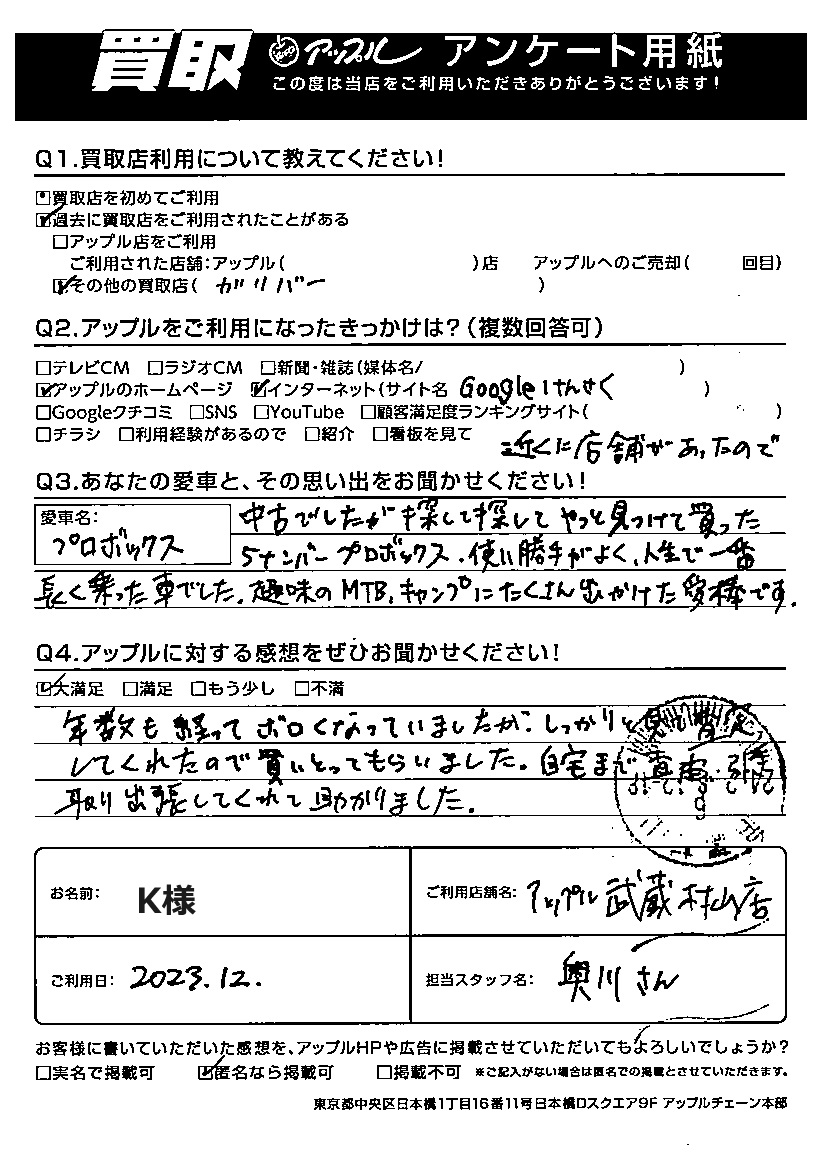 買取 アップル アンケート用紙
この度は当店をご利用いただきありがとうございます!
Q1.買取店利用について教えてください!
□買取店を初めてご利用
☑過去に買取店をご利用されたことがある
□アップル店をご利用
ご利用された店舗:アップル( )店 アップルへのご売却( 回目)
☑その他の買取店( ガリバー )
Q2.アップルをご利用になったきっかけは?(複数回答可)
□テレビCM □ラジオCM □新聞・雑誌(媒体名/ )
☑アップルのホームページ ☑インターネット(サイト名 Googleけんさく )
□Googleクチコミ □SNS □YouTube □顧客満足度ランキングサイト( )
□チラシ □利用経験があるので □紹介 □看板を見て 近くに店舗があったので
Q3.あなたの愛車と、その思い出をお聞かせください!
愛車名:
プロボックス
中古でしたが探して探してやっと見つけて買った
5ナンバープロボックス.使い勝手がよく、人生で一番
長く乗った車でした。趣味のMTB、キャンプにたくさん出かけた相棒です.
Q4.アップルに対する感想をぜひお聞かせください!
☑大満足 □満足 □もう少し □不満
年数も経ってボロくなっていましたが、しっかりと見て査定
してくれたので買いとってもらいました。自宅まで査定、引き
取り出張してくれて助かりました.
お名前: K様
ご利用店舗名: アップル武蔵村山店
ご利用日: 2023.12.
担当スタッフ名: 奥川さん
お客様に書いていただいた感想を、アップルHPや広告に掲載させていただいてもよろしいでしょうか?
□実名で掲載可 ☑匿名なら掲載可 □掲載不可 ※ご記入がない場合は匿名での掲載とさせていただきます。
東京都中央区日本橋1丁目16番11号日本橋Dスクエア9F アップルチェーン本部